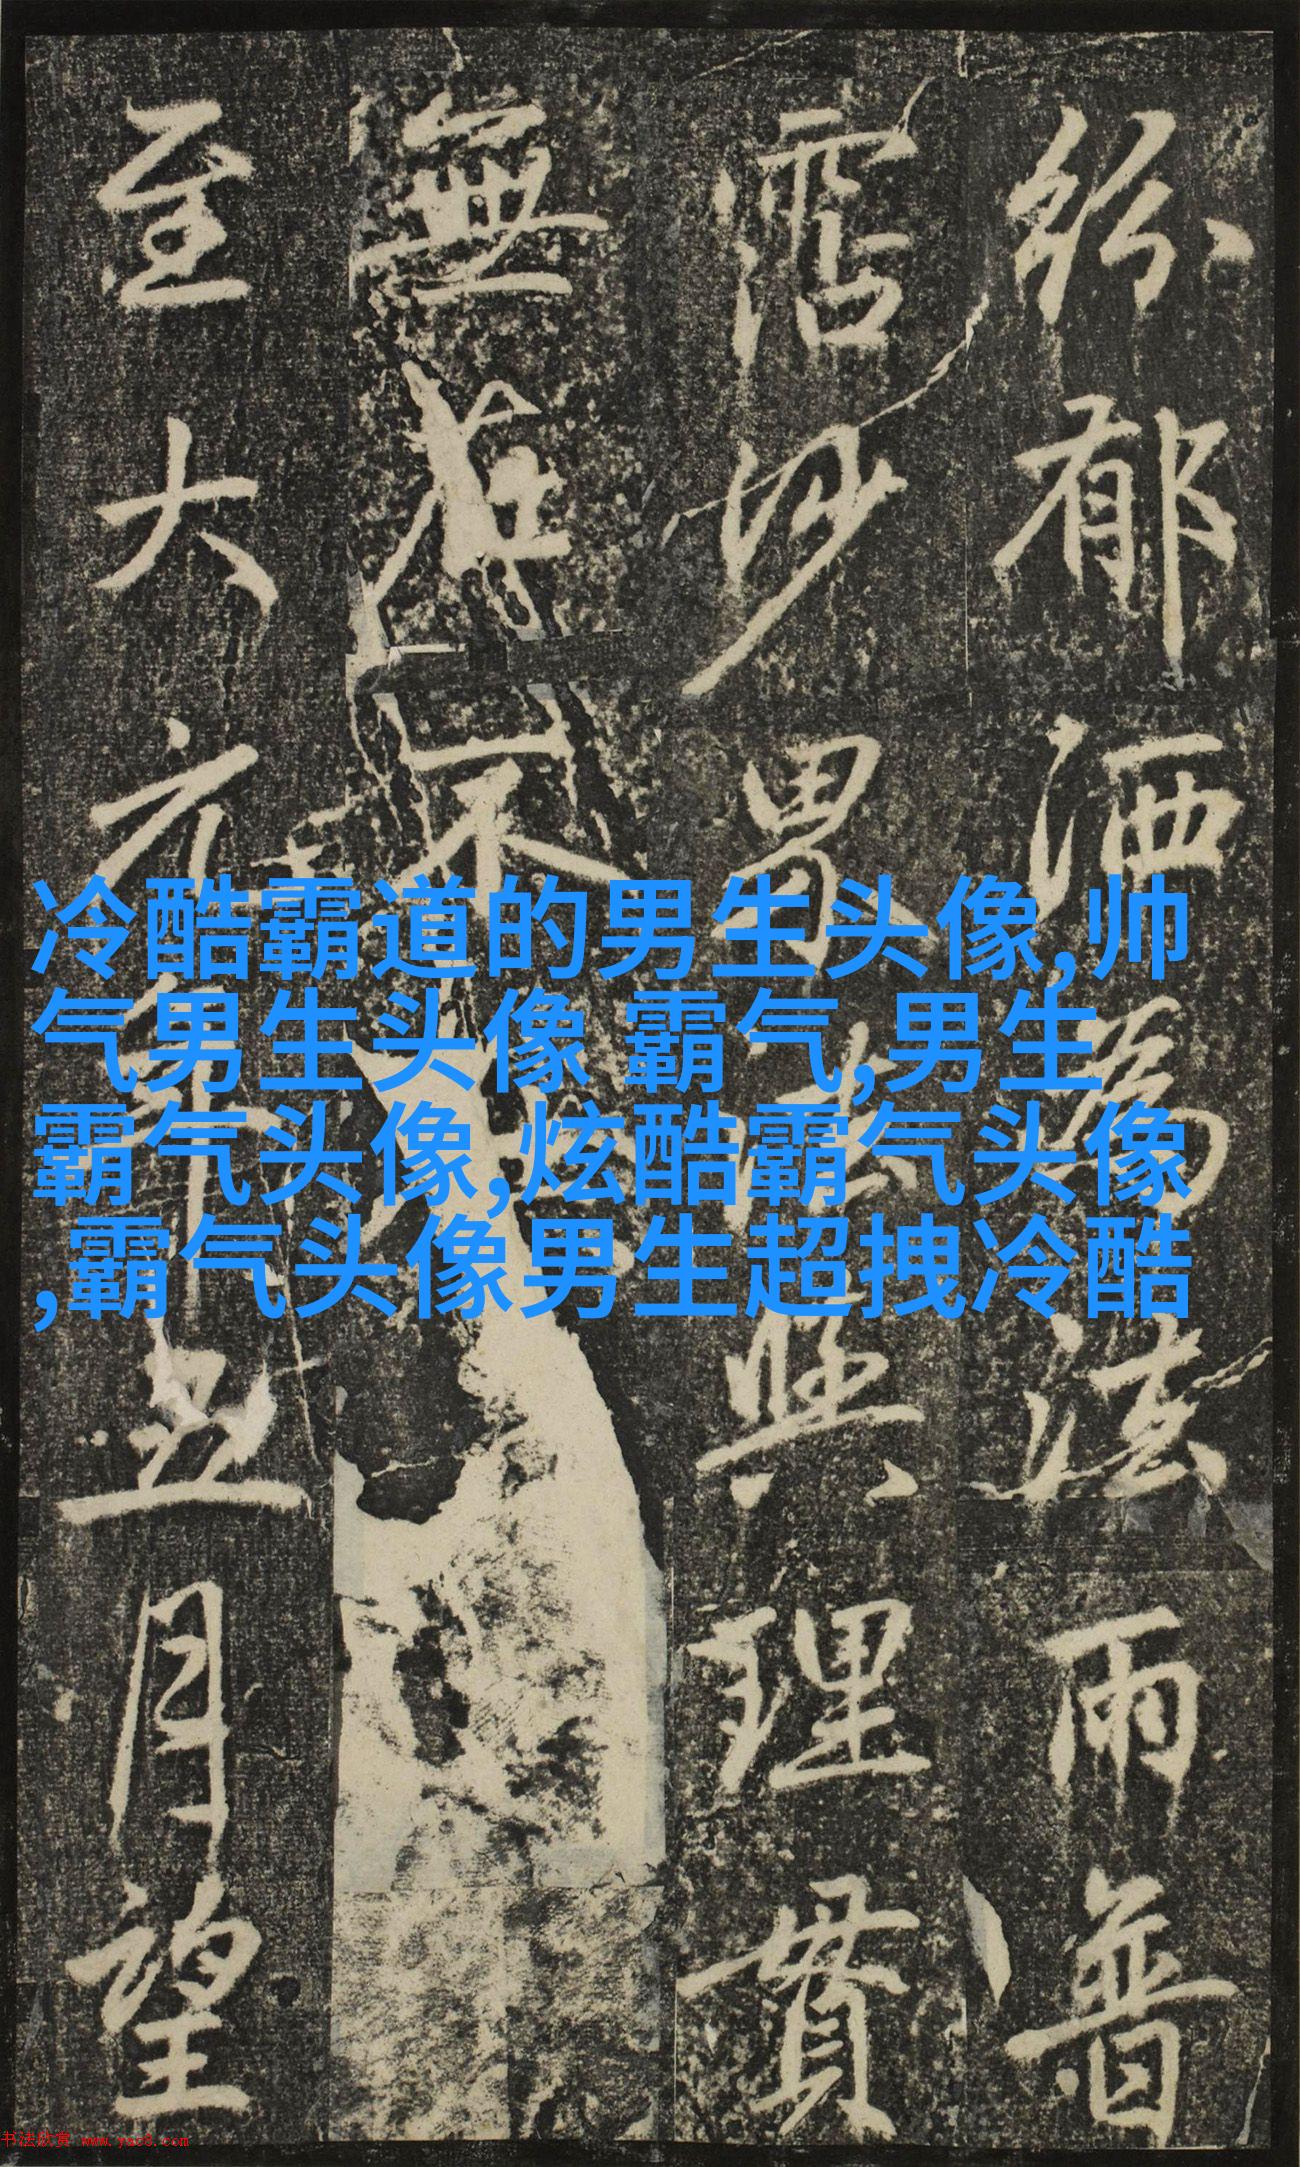 紛郁洒爲法雨普
霑沙界大照理貫
無在不
至大六年五月望
冷酷霸道的男生头像,帅
气男生头像 霸气,男生
霸气头像,炫酷霸气头像
,霸气头像男生超拽冷酷
书法欣赏 www.yac8.com